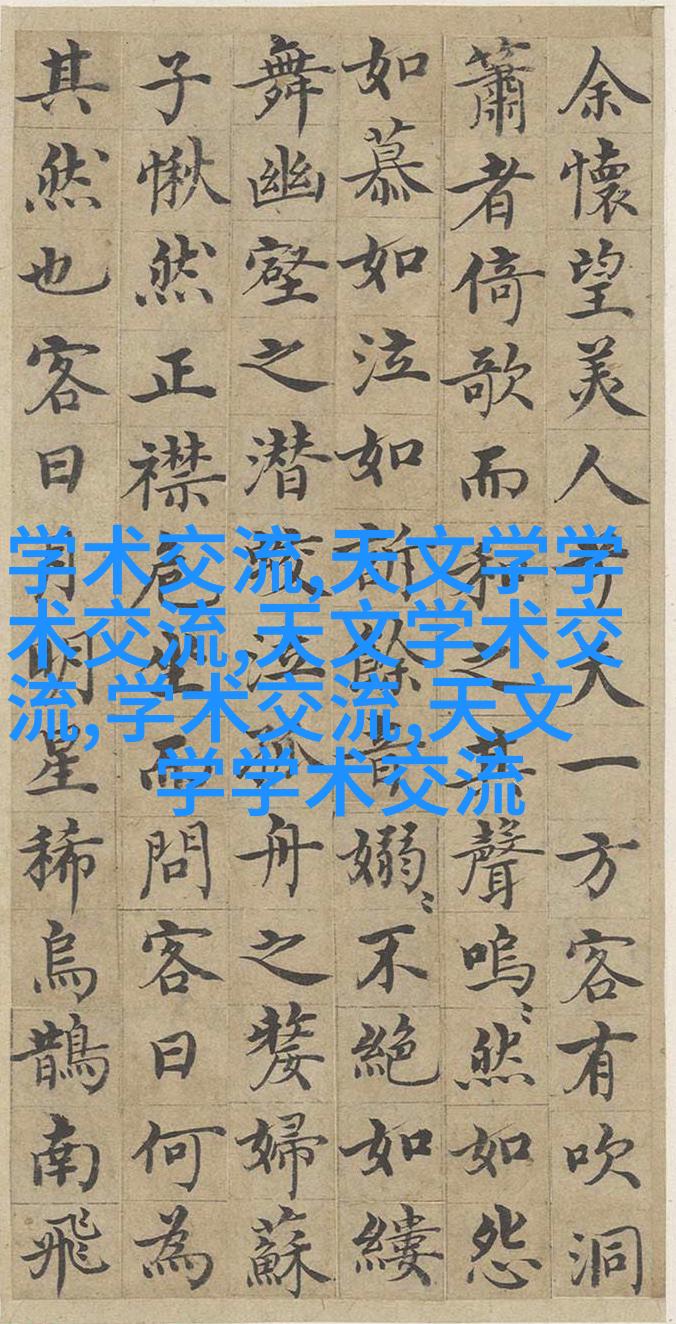 余懷望美人兮天一方客有吹洞
簫者倚歌而和之其聲嗚〻然如怨
如慕如泣如訴餘音嫋〻不絕如縷
舞幽壑之潛蛟泣孤舟之嫠婦蘇
子愀然正襟危坐而問客曰何為
其然也客曰月明星稀烏鵲南飛
学术交流,天文学学
术交流,天文学术交
流,学术交流,天文
学学术交流